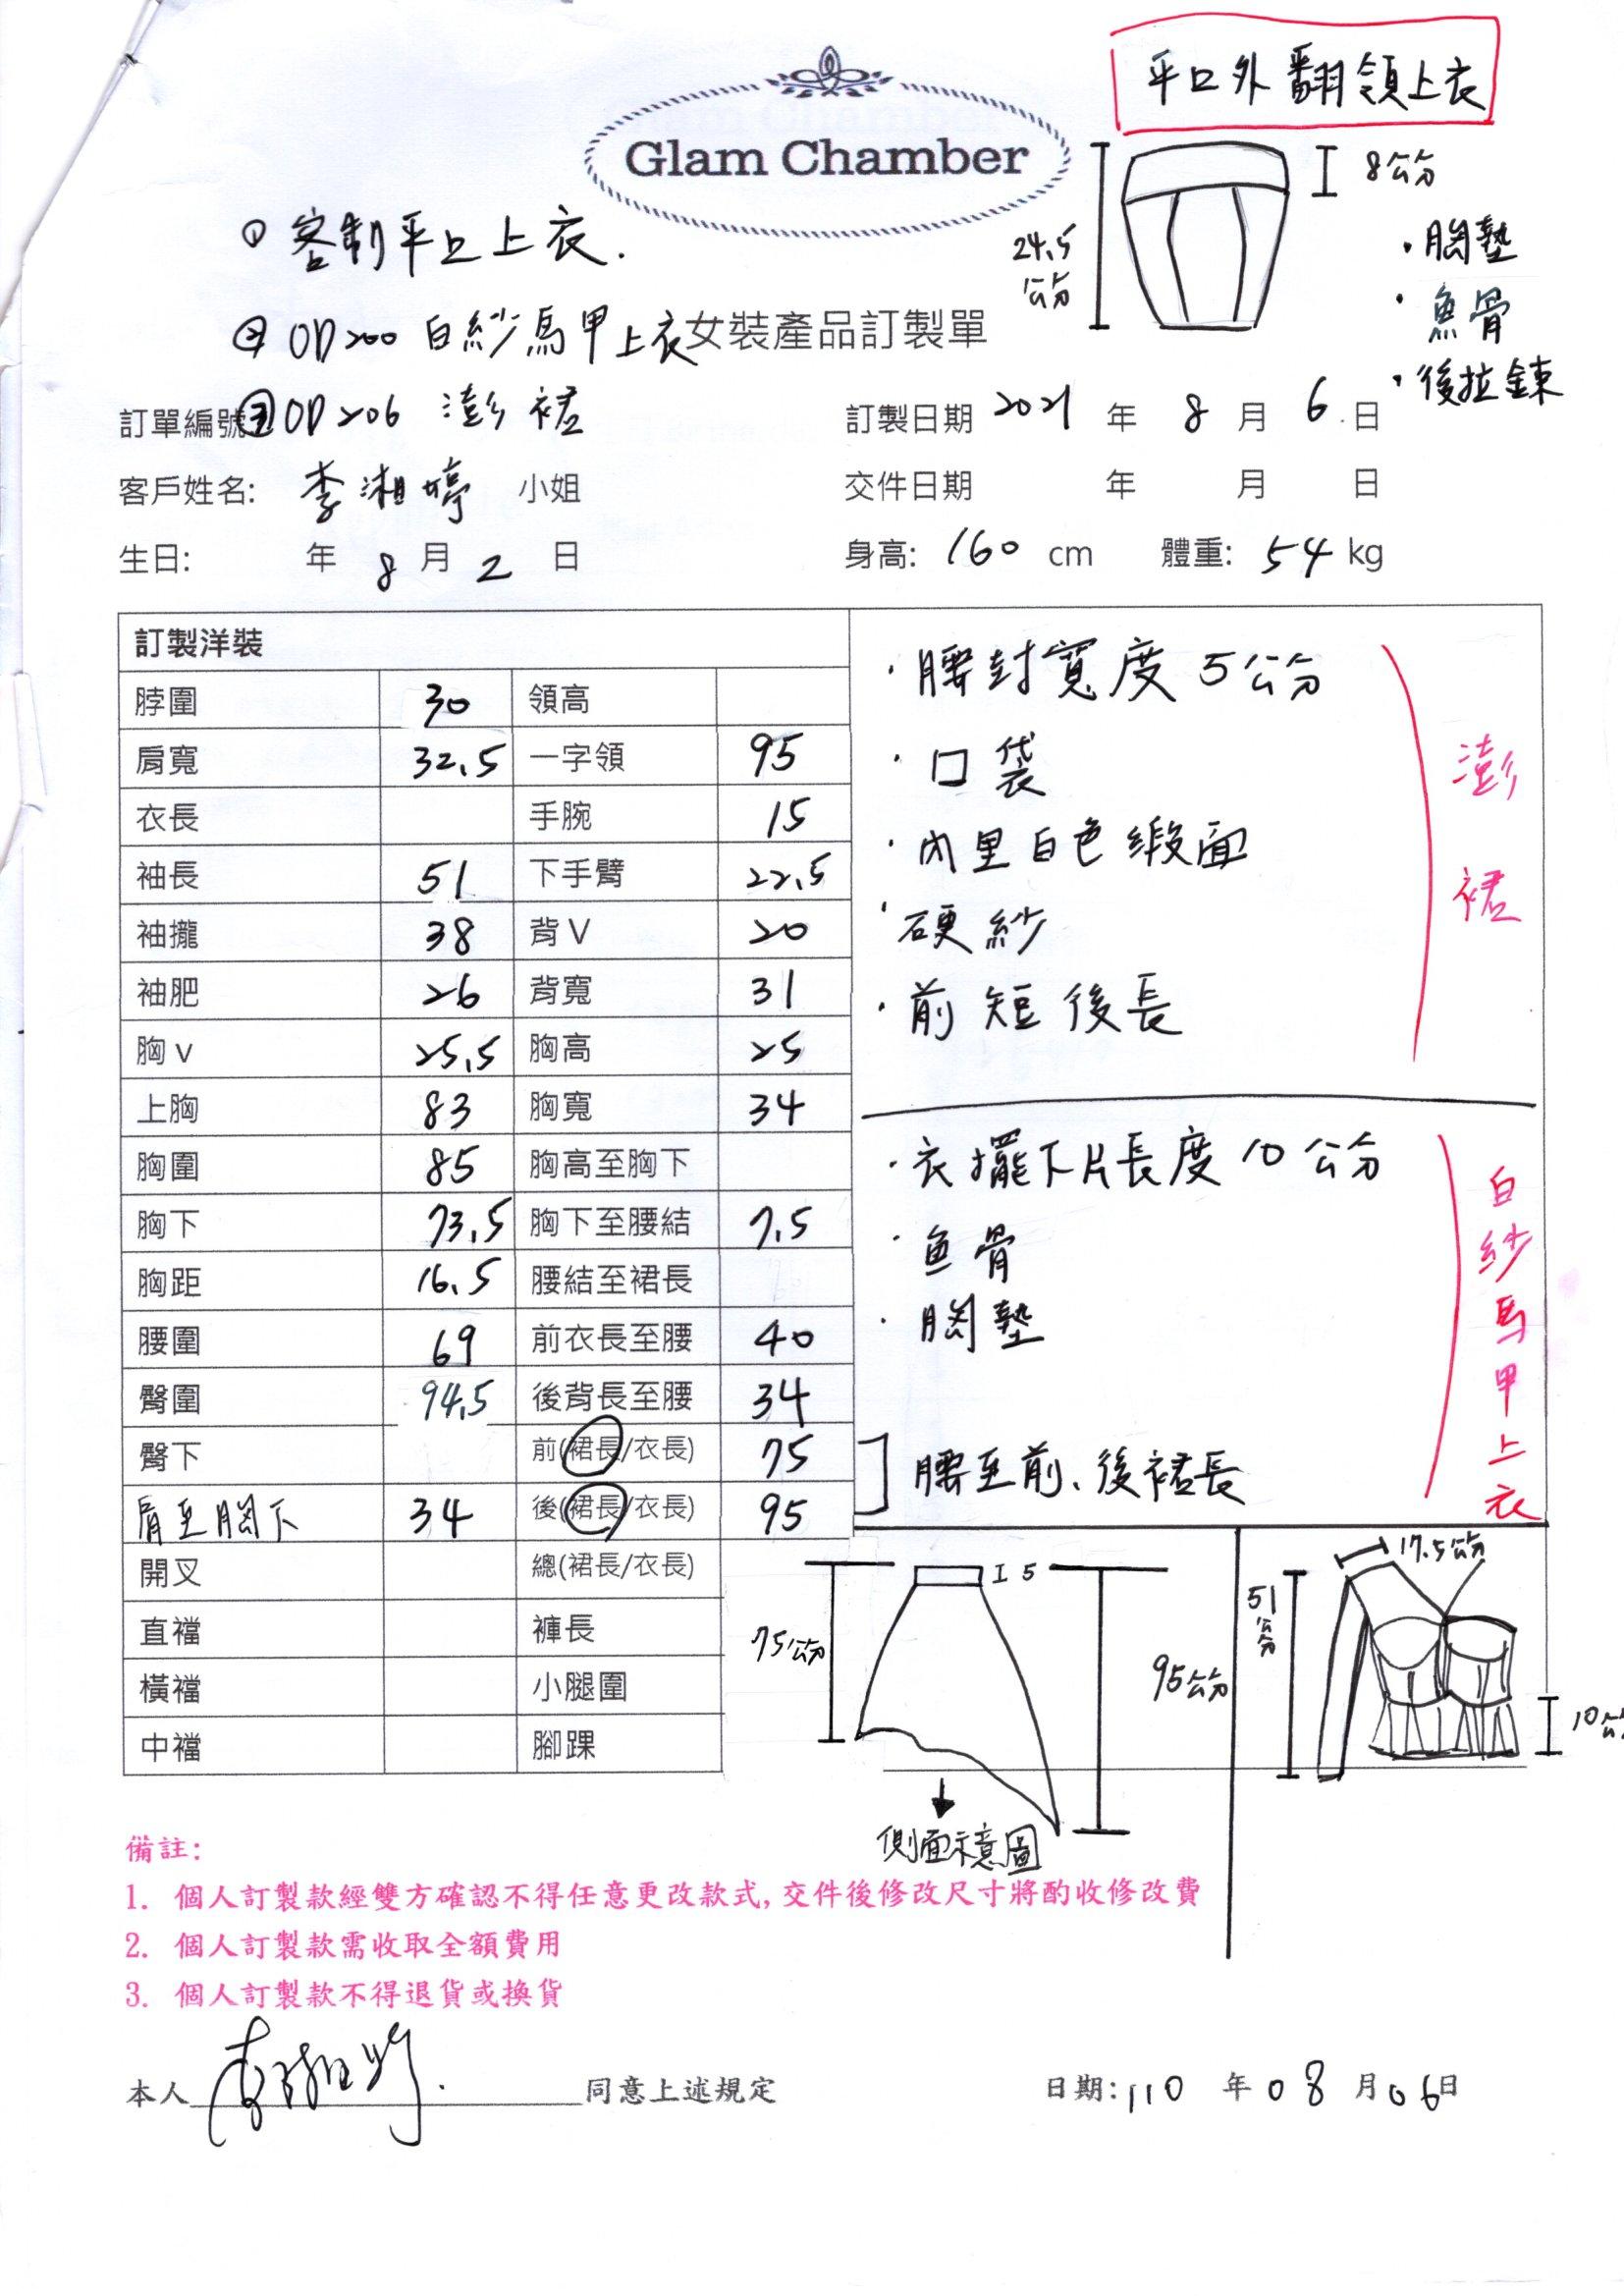 平口外翻領上衣
Glam Chamber
8公分
24.5
公分
①客制平口上衣.
・胸墊
・魚骨
・後拉鍊
②OD200 白紗馬甲上衣
女裝產品訂製單
訂單編號 ③OD206 澎裙
訂製日期 2021 年 8 月 6 日
客戶姓名: 李湘婷 小姐
交件日期 年 月 日
生日: 年 8 月 2 日
身高: 160 cm 體重: 54 kg
訂製洋裝
脖圍 30 領高
肩寬 32.5 一字領 95
衣長 手腕 15
袖長 51 下手臂 22.5
袖攏 38 背V 20
袖肥 26 背寬 31
胸v 25.5 胸高 25
上胸 83 胸寬 34
胸圍 85 胸高至胸下
胸下 73.5 胸下至腰結 7.5
胸距 16.5 腰結至裙長
腰圍 69 前衣長至腰 40
臀圍 94.5 後背長至腰 34
臀下 前(裙長/衣長) 75
肩至胸下 34 後(裙長/衣長) 95
開叉 總(裙長/衣長)
直襠 褲長
橫襠 小腿圍
中襠 腳踝
・腰封寬度 5公分
・口袋
・內里白色緞面
・硬紗
・前短後長
澎裙
・衣擺下片長度 10 公分
・魚骨
・胸墊
白紗馬甲上衣
腰至前、後裙長
5
75公分
95公分
側面示意圖
17.5公分
51公分
10公分
備註:
1. 個人訂製款經雙方確認不得任意更改款式,交件後修改尺寸將酌收修改費
2. 個人訂製款需收取全額費用
3. 個人訂製款不得退貨或換貨
本人 李湘婷. 同意上述規定
日期:110 年 08 月 06日